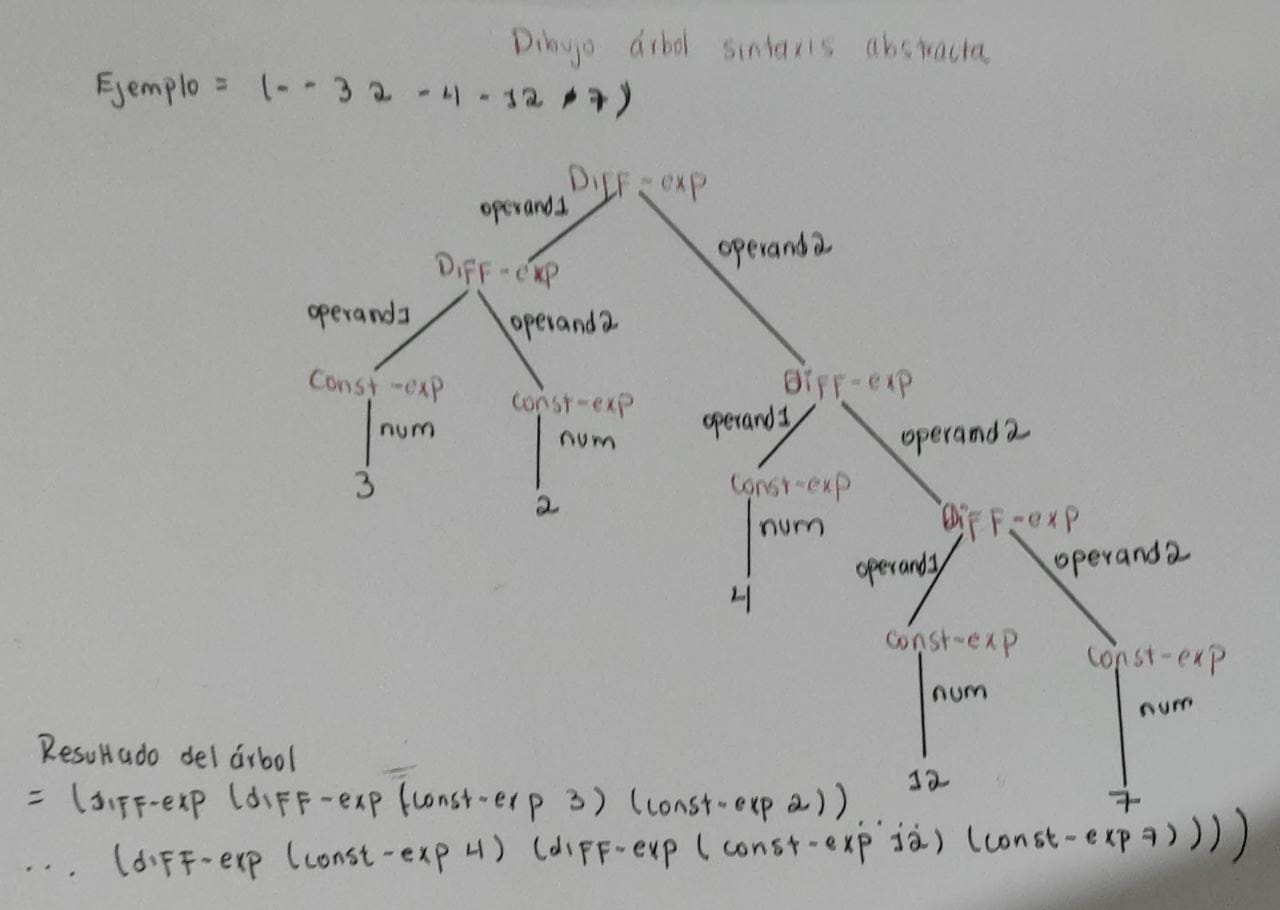 Dibujo árbol sintaxis abstracta
Ejemplo = (- - 3 2 - 4 - 12 7)
Diff-exp
operand1
operand2
Diff-exp
operand1
operand2
Const-exp
const-exp
Diff-exp
num
num
operand1
operand2
3
2
Const-exp
Diff-exp
num
operand1
operand2
4
const-exp
const-exp
num
num
12
7
Resultado del árbol
= (diff-exp (diff-exp (const-exp 3) (const-exp 2))
... (diff-exp (const-exp 4) (diff-exp (const-exp 12) (const-exp 7))))